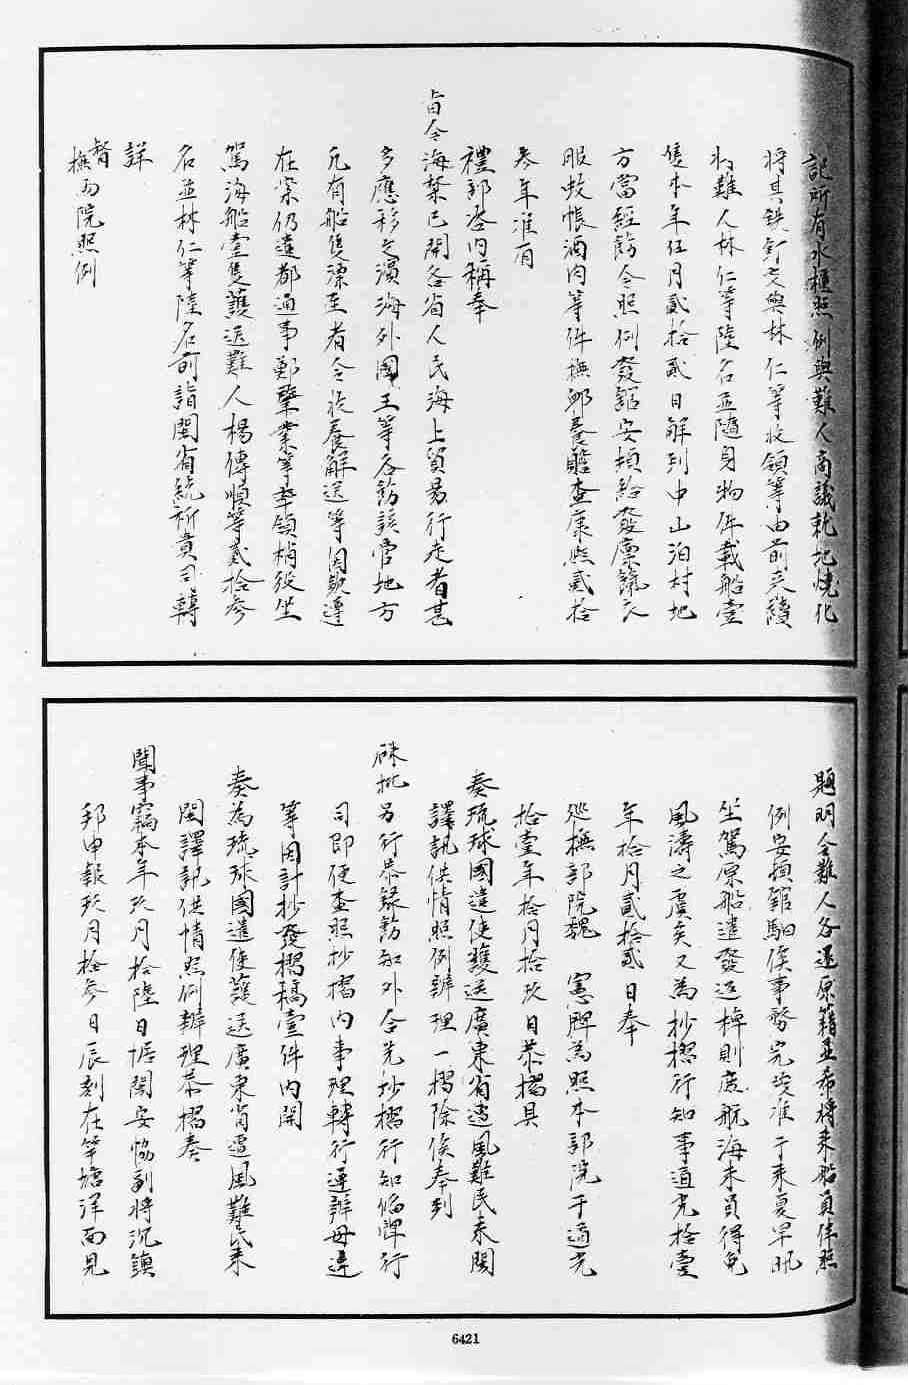 記所有水櫃照例與難人商議就地燒化
將其鉄釘交與林仁等收領等由前来隨
将難人林仁等陸名并隨身物件載船壹
隻本年伍月貳拾貳日解到中山泊村地
方當經飭令照例發館安頓給發廩餼衣
服蚊帳酒肉等件撫卹養贍查康熙貳拾
叁年准有
禮部咨内稱奉
旨今海禁已開各省人民海上貿易行走者甚
多應移文濱海外國王等各飭該管地方
凡有船隻漂至者令收養解送等因欽遵
在案仍遣都通事鄭肇業等率領梢役坐
駕海船壹隻護送難人楊傳順等貳拾叁
名並林仁等陸名前詣閩省統祈貴司轉
詳
督撫两院照例
題明令難人各還原籍並希將来船員伴照
例安挿館駟俟事務完竣准于来夏早汛
坐駕原船遣發返棹則庶航海末員得免
風濤之虞矣又為抄摺行知事道光拾壹
年拾月貳拾貳日奉
巡撫部院魏 憲牌為照本部院于道光
拾壹年拾月拾玖日恭摺具
奏琉球國遣使護送廣東省遭風難民来閩
譯訊供情照例辦理一摺除俟奉到
硃批另行恭錄飭知外合先抄摺行知俻牌行
司即便查照抄摺内事理轉行遵辦毋違
等因計抄發摺稿壹件内開
奏為琉球國遣使護送廣東省遭風難民来
閩譯訊供情照例辦理恭摺奏
聞事竊本年玖月拾陸日據閩安恊副將沈鎮
邦申報玖月拾參日辰刻在竿塘洋面見
6421